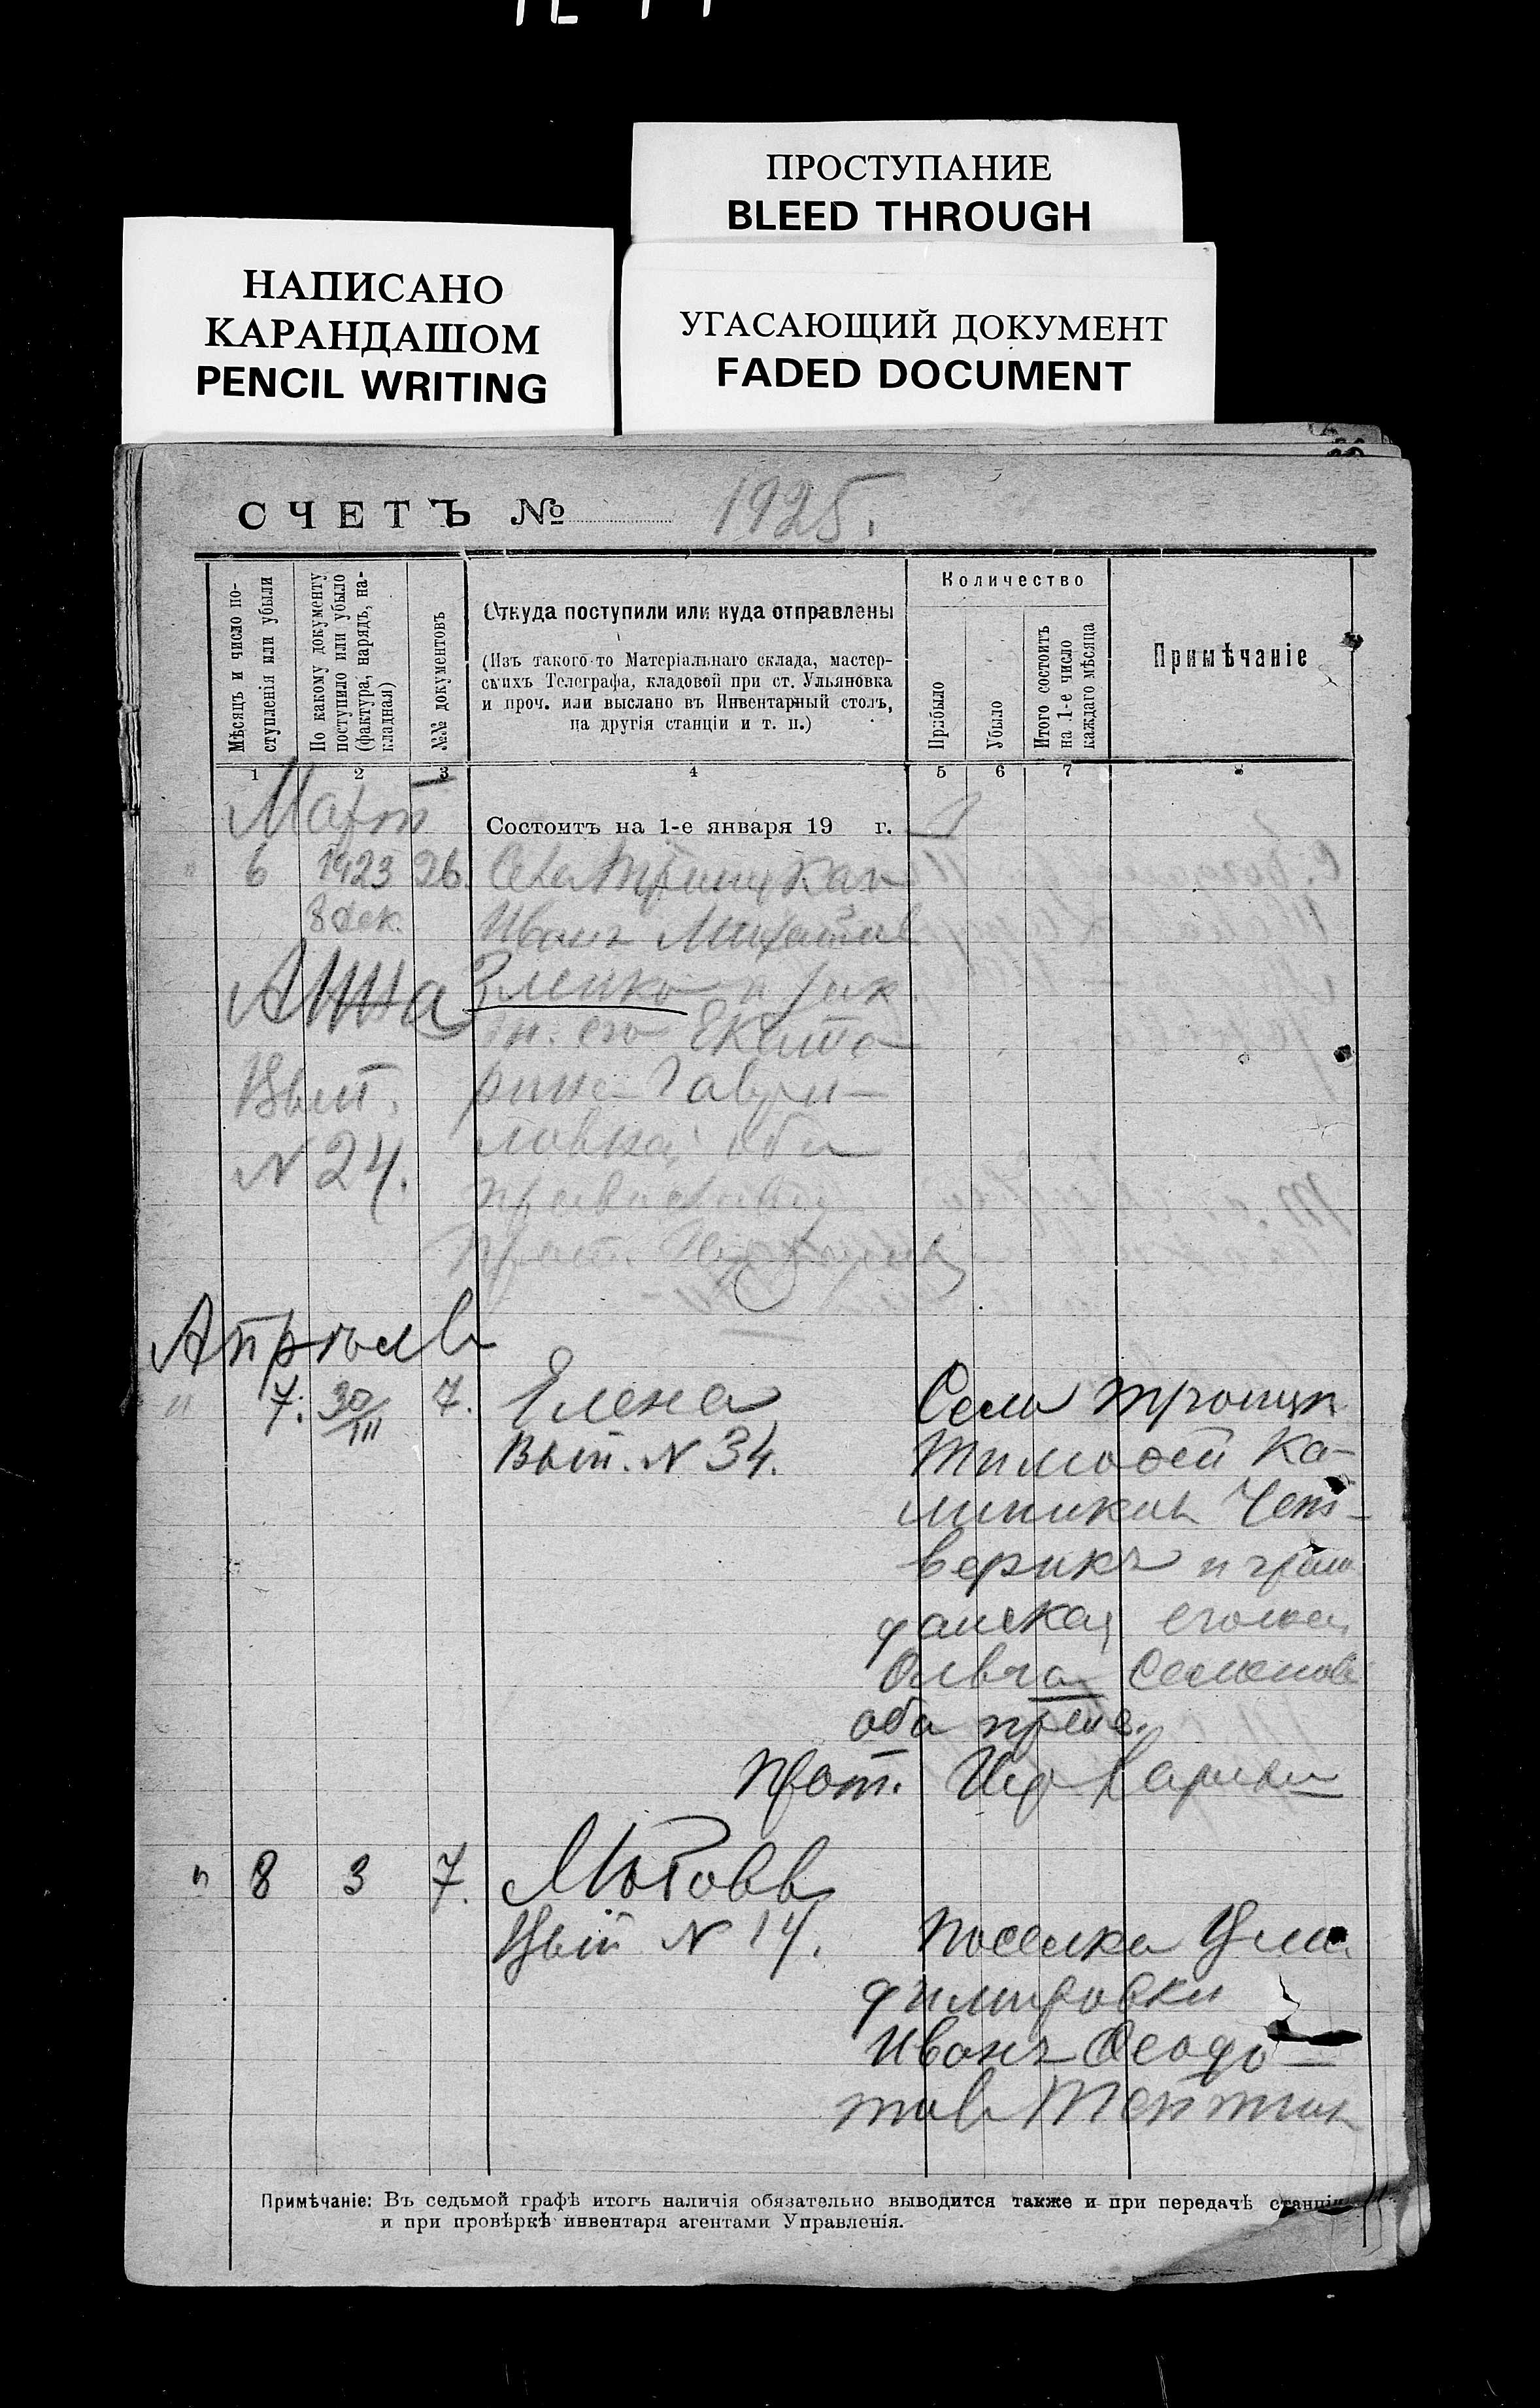 ПРОСТУПАНИЕ
BLEED THROUGH
НАПИСАНО
КАРАНДАШОМ
PENCIL WRITING
УГАСАЮЩИЙ ДОКУМЕНТ
FADED DOCUMENT
СЧЕТЪ № 1925.
Мѣсяцъ и число по-
ступленія или убыли
По какому документу
поступило или убыло
(фактура, нарядъ, на-
кладная)
№№ документовъ
Откуда поступили или куда отправлены
(Изъ такого-то Матеріальнаго склада, мастер-
скихъ Телеграфа, кладовой при ст. Ульяновка
и проч. или выслано въ Инвентарный столъ,
на другія станціи и т. п.)
Количество
Прибыло
Убыло
Итого состоитъ
на 1-е число
каждаго мѣсяца
Примѣчаніе
1 2 3 4 5 6 7 8
Март
Состоитъ на 1-е января 19 г.
" 6 1923 26. Села Троицкаго
8 дек. Иванъ
Анна и
ж. его Екате
Вып. рина Гаври-
N 24. ловна, оба
Прот.
Апрѣль
" 7. 30/III 7. Елена Села Троицк
Вып. N 34. Тимофей Ка-
Чет-
верикъ и граж
данская его жена
Ольга Семенов
оба прав.
Прот.
" 8 3 7. Любовь
Вып N 14. поселка Вла
димировки
Иванъ Феодо-
тов
Примѣчаніе: Въ седьмой графѣ итогъ наличія обязательно выводится также и при передачѣ станціи
и при провѣркѣ инвентаря агентами Управленія.